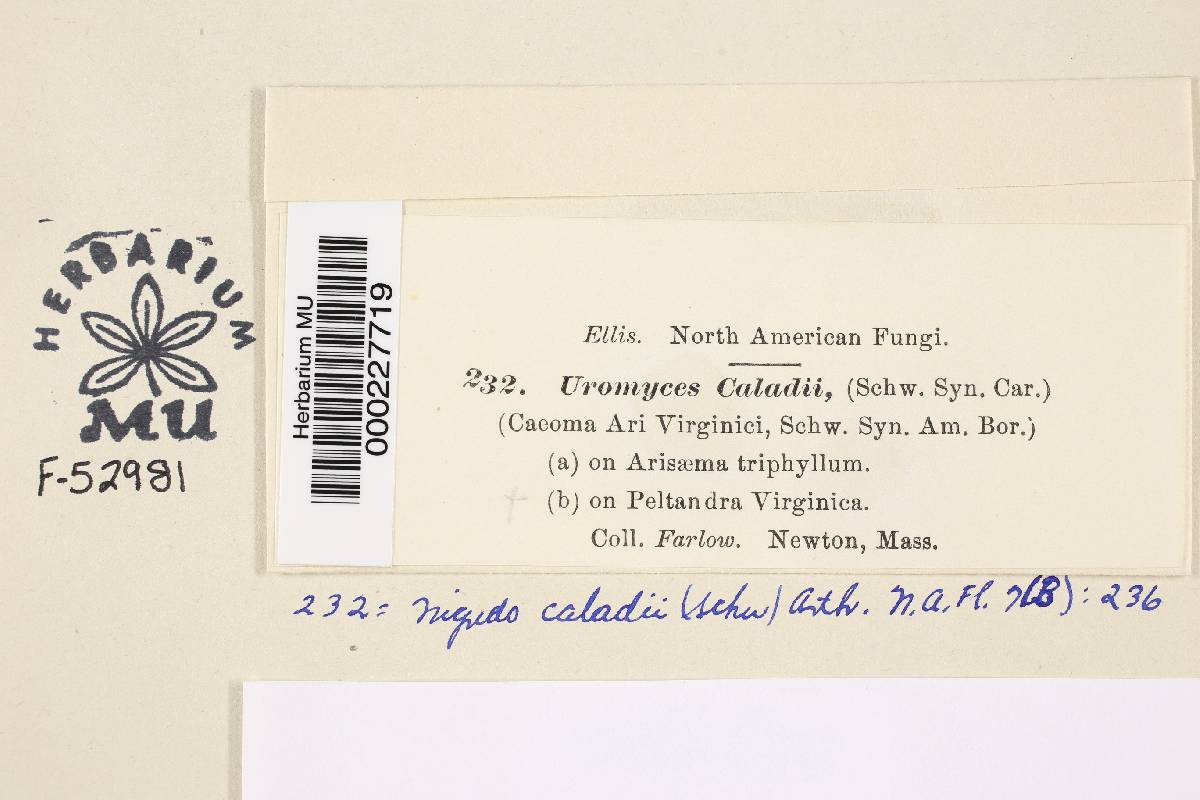 HERBARIUM
MU
F-52981
Herbarium MU
000227719
Ellis. North American Fungi.
232. Uromyces Caladii, (Schw. Syn. Car.)
(Caeoma Ari Virginici, Schw. Syn. Am. Bor.)
(a) on Arisæma triphyllum.
(b) on Peltandra Virginica.
Coll. Farlow. Newton, Mass.
232 = Nigredo caladii (Schw) Arth. N.A.Fl. 7(B): 236